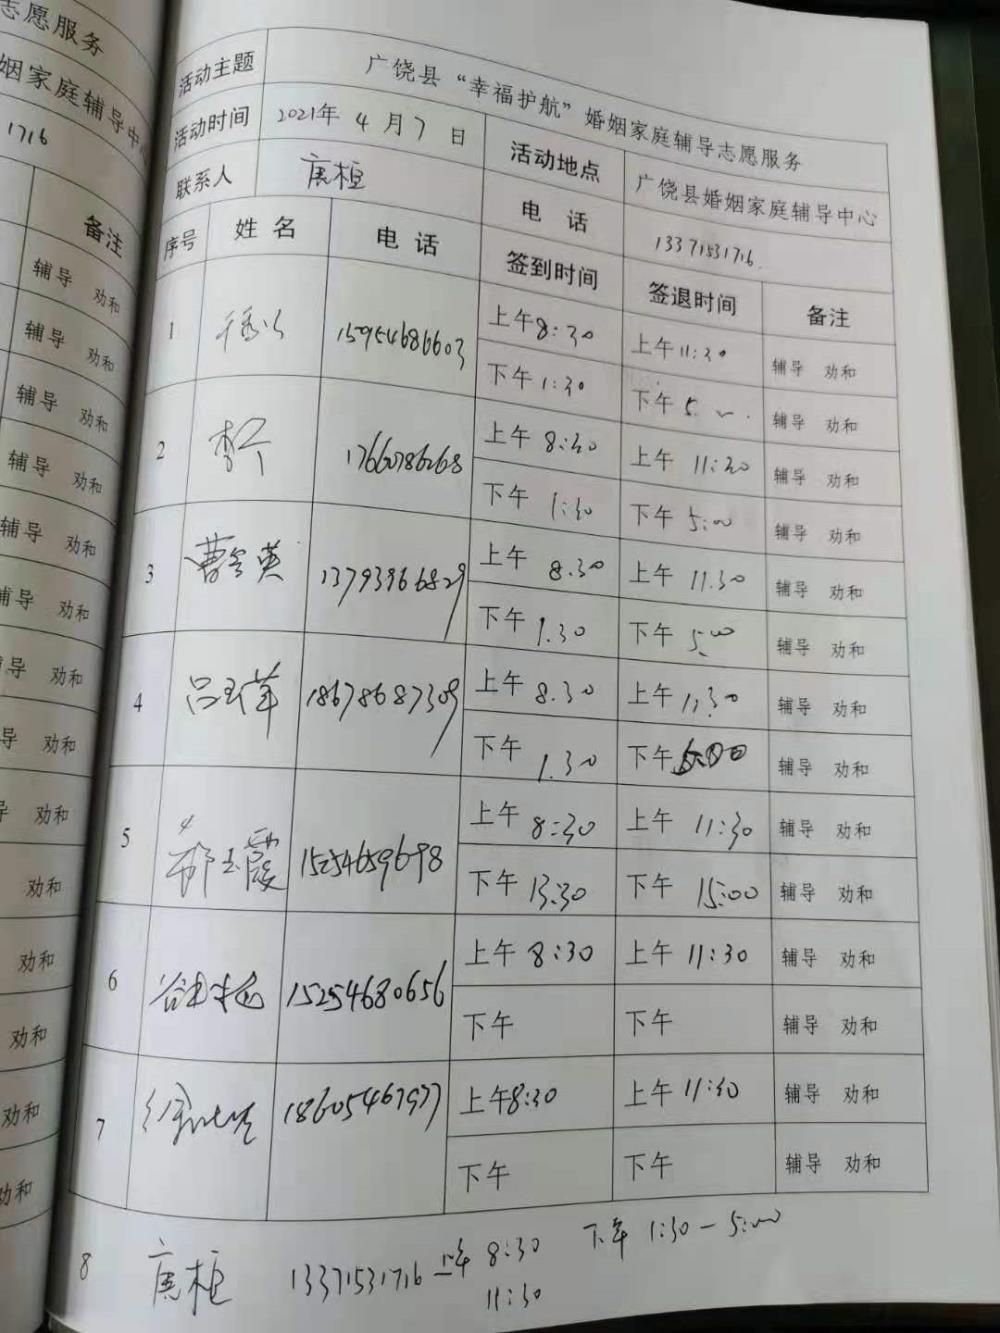 志愿服务
姻家庭辅导中心
1716
备注
辅导 劝和
辅导 劝和
辅导 劝和
辅导 劝和
辅导 劝和
辅导 劝和
导 劝和
导 劝和
导 劝和
劝和
劝和
劝和
劝和
劝和
活动主题 广饶县“幸福护航”婚姻家庭辅导志愿服务
活动时间 2021年 4月7日 活动地点 广饶县婚姻家庭辅导中心
联系人 电话 13371531716
序号 姓名 电话 签到时间 签退时间 备注
1 15954686603 上午8:30 上午11:30 辅导 劝和
下午1:30 下午5:00 辅导 劝和
2 17660786268 上午8:30 上午11:30 辅导 劝和
下午1:30 下午5:00 辅导 劝和
3 曹 英 上午8.30 上午11.30 辅导 劝和
下午1.30 下午5:00 辅导 劝和
4 吕玉苹 18678687309 上午8.30 上午11:30 辅导 劝和
下午1.30 下午5:00 辅导 劝和
5 玉霞 15254659698 上午8:30 上午11:30 辅导 劝和
下午13:30 下午15:00 辅导 劝和
6 15254680656 上午8:30 上午11:30 辅导 劝和
下午 下午 辅导 劝和
7 18605467977 上午8:30 上午11:30 辅导 劝和
下午 下午 辅导 劝和
8 13371531716 上午8:30 下午1:30-5:00
11:30